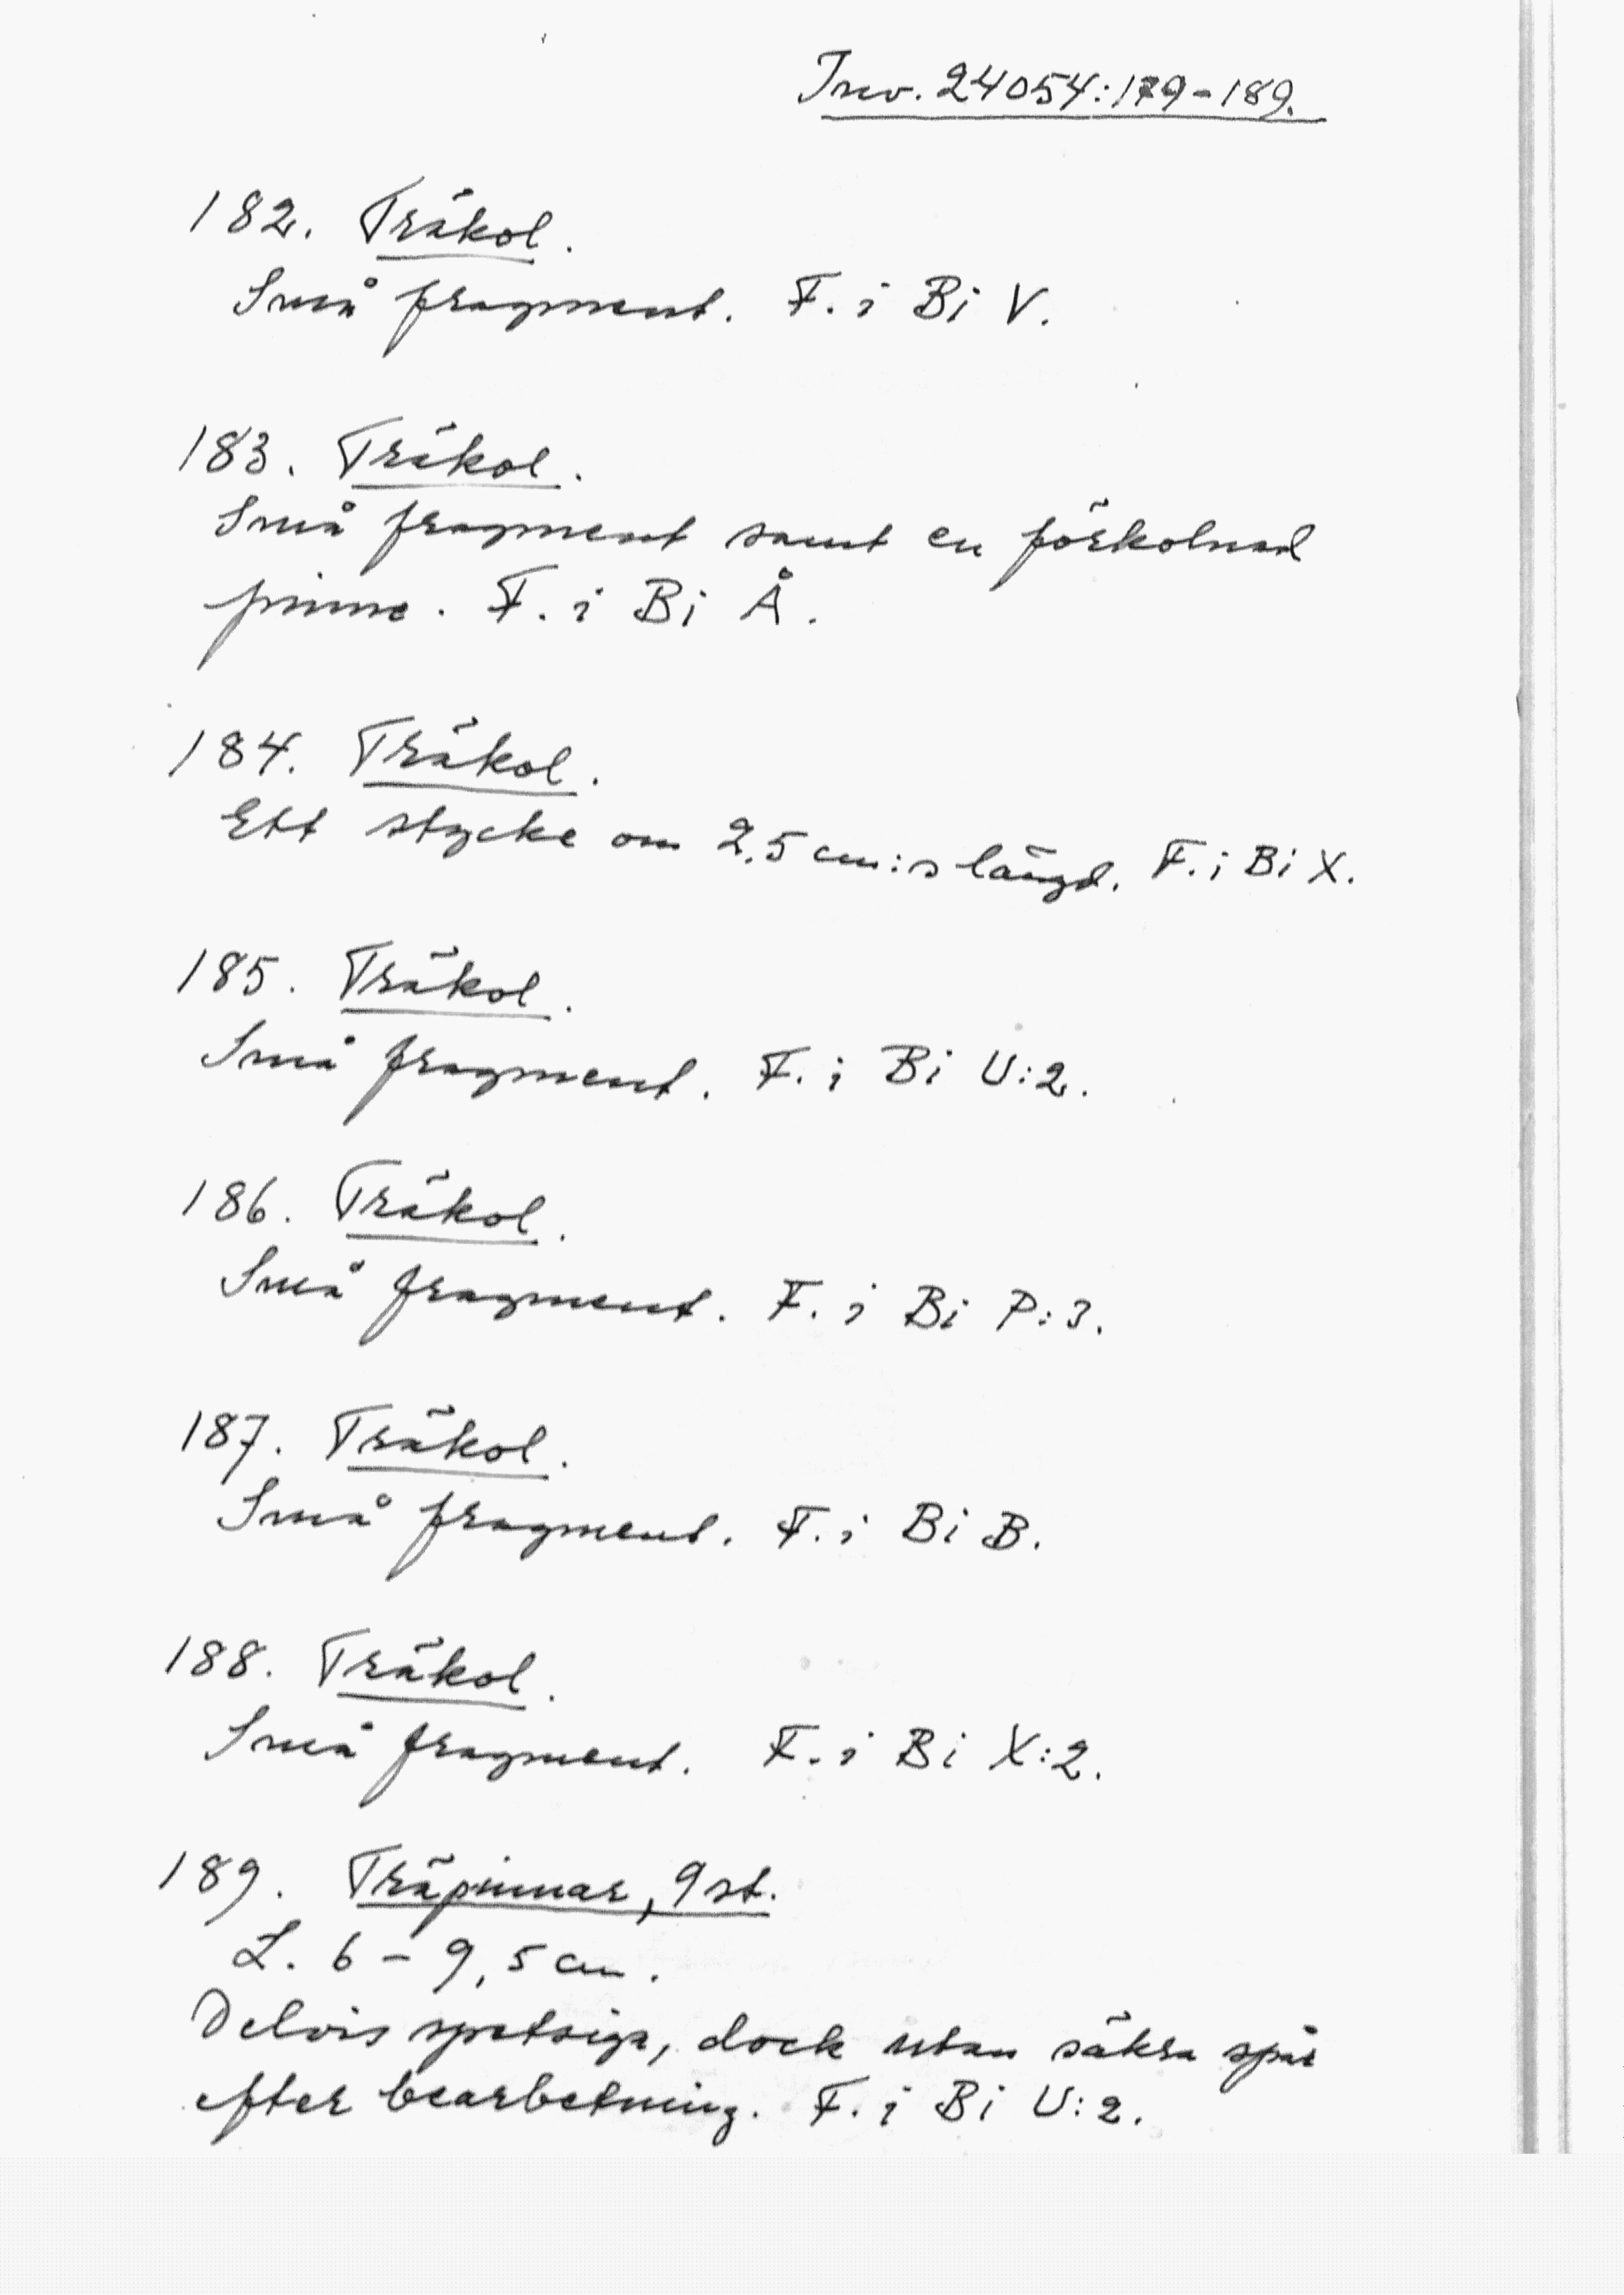 Inv. 24054:179-189.
182. Träkol.
Små fragment. F. i Bi V.
183. Träkol.
Små fragment samt en förkolnad
pinne. F. i Bi Å.
184. Träkol.
Ett stycke om 2,5 cm:s längd. F. i Bi X.
185. Träkol.
Små fragment. F. i Bi U:2.
186. Träkol.
Små fragment. F. i Bi P:3.
187. Träkol.
Små fragment. F. i Bi B.
188. Träkol.
Små fragment. F. i Bi X:2.
189. Träpinnar, 9 st.
L. 6 - 9,5 cm.
Delvis spetsiga, dock utan säkra spår
efter bearbetning. F. i Bi U:2.